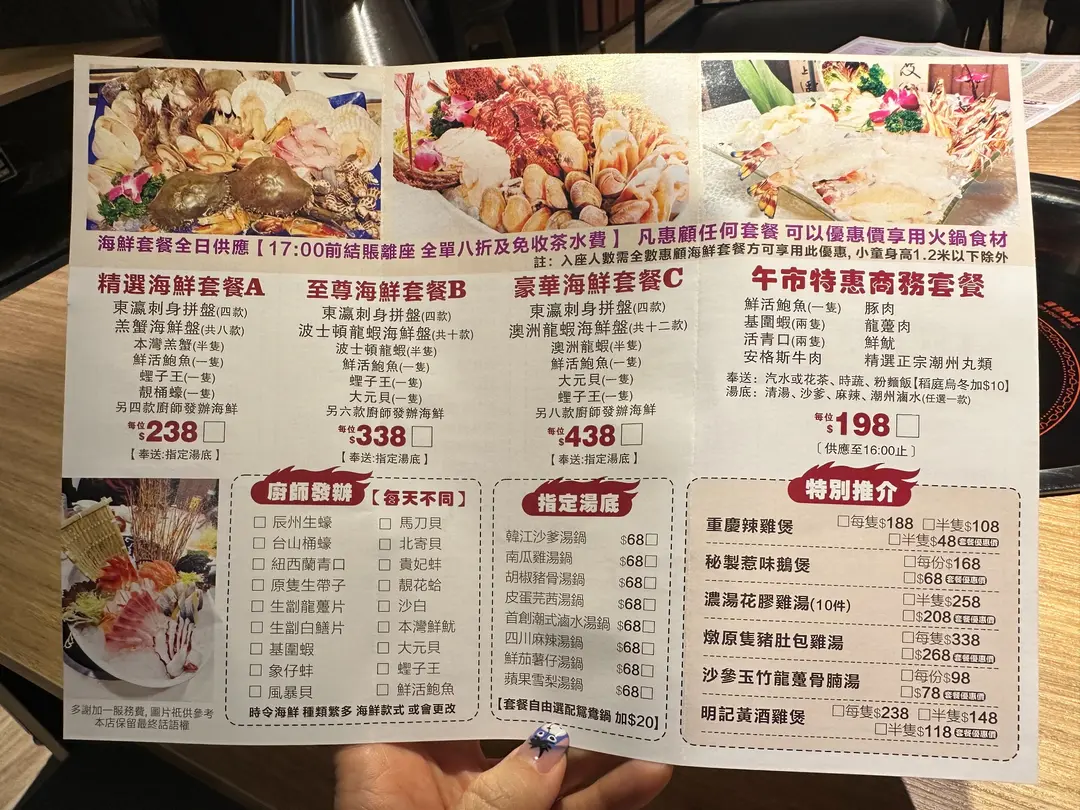 海鮮套餐全日供應【17:00前結賬離座 全單八折及免收茶水費】 凡惠顧任何套餐 可以優惠價享用火鍋食材
註：入座人數需全數惠顧海鮮套餐方可享用此優惠, 小童身高1.2米以下除外
精選海鮮套餐A
東瀛刺身拼盤(四款)
羔蟹海鮮盤(共八款)
本灣羔蟹(半隻)
鮮活鮑魚(一隻)
蟶子王(一隻)
靚桶蠔(一隻)
另四款廚師發辦海鮮
每位$238
【奉送:指定湯底】
至尊海鮮套餐B
東瀛刺身拼盤(四款)
波士頓龍蝦海鮮盤(共十款)
波士頓龍蝦(半隻)
鮮活鮑魚(一隻)
蟶子王(一隻)
大元貝(一隻)
另六款廚師發辦海鮮
每位$338
【奉送:指定湯底】
豪華海鮮套餐C
東瀛刺身拼盤(四款)
澳洲龍蝦海鮮盤(共十二款)
澳洲龍蝦(半隻)
鮮活鮑魚(一隻)
大元貝(一隻)
蟶子王(一隻)
另八款廚師發辦海鮮
每位$438
【奉送:指定湯底】
午市特惠商務套餐
鮮活鮑魚(一隻) 豚肉
基圍蝦(兩隻) 龍躉肉
活青口(兩隻) 鮮魷
安格斯牛肉 精選正宗潮州丸類
奉送：汽水或花茶、時蔬、粉麵飯【稻庭烏冬加$10】
湯底：清湯、沙爹、麻辣、潮州滷水(任選一款)
每位$198
〔供應至16:00止〕
多謝加一服務費, 圖片祇供參考
本店保留最終話語權
廚師發辦【每天不同】
辰州生蠔 馬刀貝
台山桶蠔 北寄貝
紐西蘭青口 貴妃蚌
原隻生帶子 靚花蛤
生劏龍躉片 沙白
生劏白鱔片 本灣鮮魷
基圍蝦 大元貝
象仔蚌 蟶子王
風暴貝 鮮活鮑魚
時令海鮮 種類繁多 海鮮款式 或會更改
指定湯底
韓江沙爹湯鍋 $68
南瓜雞湯鍋 $68
胡椒豬骨湯鍋 $68
皮蛋芫茜湯鍋 $68
首創潮式滷水湯鍋 $68
四川麻辣湯鍋 $68
鮮茄薯仔湯鍋 $68
蘋果雪梨湯鍋 $68
【套餐自由選配鴛鴦鍋 加$20】
特別推介
重慶辣雞煲 每隻$188 半隻$108
半隻$48 套餐優惠價
秘製惹味鵝煲 每份$168
$68 套餐優惠價
濃湯花膠雞湯(10件) 半隻$258
$208 套餐優惠價
燉原隻豬肚包雞湯 每隻$338
$268 套餐優惠價
沙參玉竹龍躉骨腩湯 每份$98
$78 套餐優惠價
明記黃酒雞煲 每隻$238 半隻$148
半隻$118 套餐優惠價